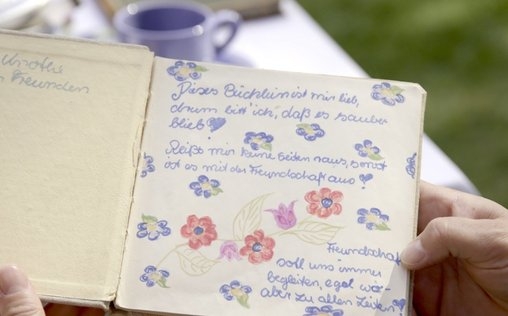 Freunden
Dieses Büchlein ist mir lieb,
drum bitt' ich, daß es sauber
bleib!
Reißt mir keine Seiten raus, sonst
ist es mit der Freundschaft aus!
Freundschaft
soll uns immer
begleiten, egal wo-
aber zu allen Zeiten!